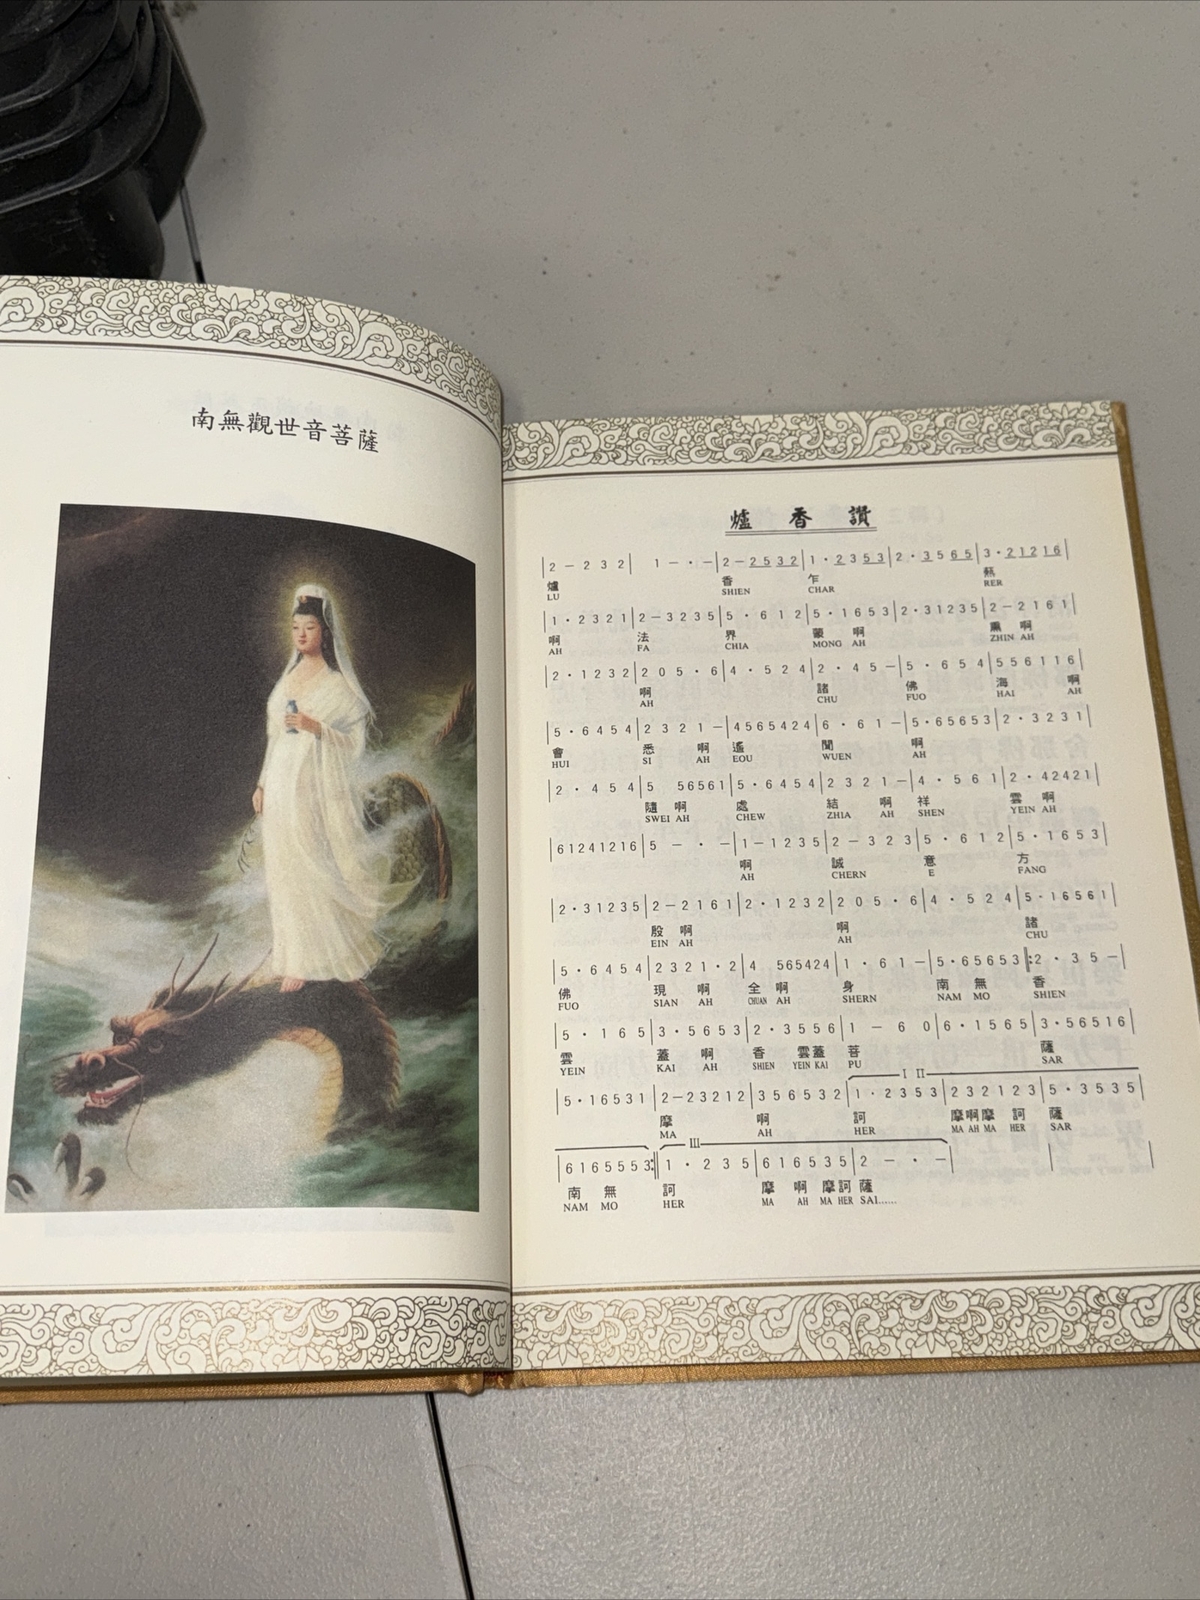 南無觀世音菩薩
爐香讚
|2 – 2 3 2| 1 – · –|2 – 2 5 3 2|1 · 2 3 5 3|2 · 3 5 6 5|3 · 2 1 2 1 6|
爐 香 乍 爇
LU SHIEN CHAR RER
|1 · 2 3 2 1|2 – 3 2 3 5|5 · 6 1 2|5 · 1 6 5 3|2 · 3 1 2 3 5|2 – 2 1 6 1|
啊 法 界 蒙 啊 薰 啊
AH FA CHIA MONG AH ZHIN AH
|2 · 1 2 3 2|2 0 5 · 6|4 · 5 2 4|2 · 4 5 –|5 · 6 5 4|5 5 6 1 1 6|
啊 諸 佛 海 啊
AH CHU FUO HAI AH
|5 · 6 4 5 4|2 3 2 1 –|4 5 6 5 4 2 4|6 · 6 1 –|5 · 6 5 6 5 3|2 · 3 2 3 1|
會 悉 啊 遙 聞 啊
HUI SI AH EOU WUEN AH
|2 · 4 5 4|5 5 6 5 6 1|5 · 6 4 5 4|2 3 2 1 –|4 · 5 6 1|2 · 4 2 4 2 1|
隨 啊 處 結 啊 祥 雲 啊
SWEI AH CHEW ZHIA AH SHEN YEIN AH
|6 1 2 4 1 2 1 6|5 – · –|1 – 1 2 3 5|2 – 3 2 3|5 · 6 1 2|5 · 1 6 5 3|
啊 誠 意 方
AH CHERN E FANG
|2 · 3 1 2 3 5|2 – 2 1 6 1|2 · 1 2 3 2|2 0 5 · 6|4 · 5 2 4|5 · 1 6 5 6 1|
殷 啊 啊 諸
EIN AH AH CHU
|5 · 6 4 5 4|2 3 2 1 · 2|4 5 6 5 4 2 4|1 · 6 1 –|5 · 6 5 6 5 3|:2 · 3 5 –|
佛 現 啊 全 啊 身 南 無 香
FUO SIAN AH CHUAN AH SHERN NAM MO SHIEN
|5 · 1 6 5|3 · 5 6 5 3|2 · 3 5 5 6|1 – 6 0|6 · 1 5 6 5|3 · 5 6 5 1 6|
雲 蓋 啊 香 雲蓋 菩 薩
YEIN KAI AH SHIEN YEIN KAI PU SAR
I II
|5 · 1 6 5 3 1|2 – 2 3 2 1 2|3 5 6 5 3 2|1 · 2 3 5 3|2 3 2 1 2 3|5 · 3 5 3 5|
摩 啊 訶 摩啊摩 訶 薩
MA AH HER MA AH MA HER SAR
III
|6 1 6 5 5 5 3:|1 · 2 3 5|6 1 6 5 3 5|2 – · –| | |
南 無 訶 摩 啊 摩訶 薩
NAM MO HER MA AH MA HER SAI......